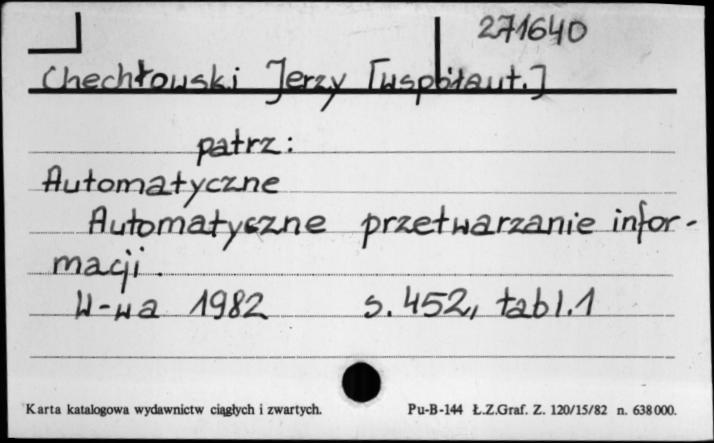 271640
Chechłowski Jerzy [współaut.]
patrz:
Automatyczne
Automatyczne przetwarzanie infor-
macji.
W-wa 1982 s. 452, tabl. 1
Karta katalogowa wydawnictw ciągłych i zwartych. Pu-B-144 Ł.Z.Graf. Z. 120/15/82 n. 638000.